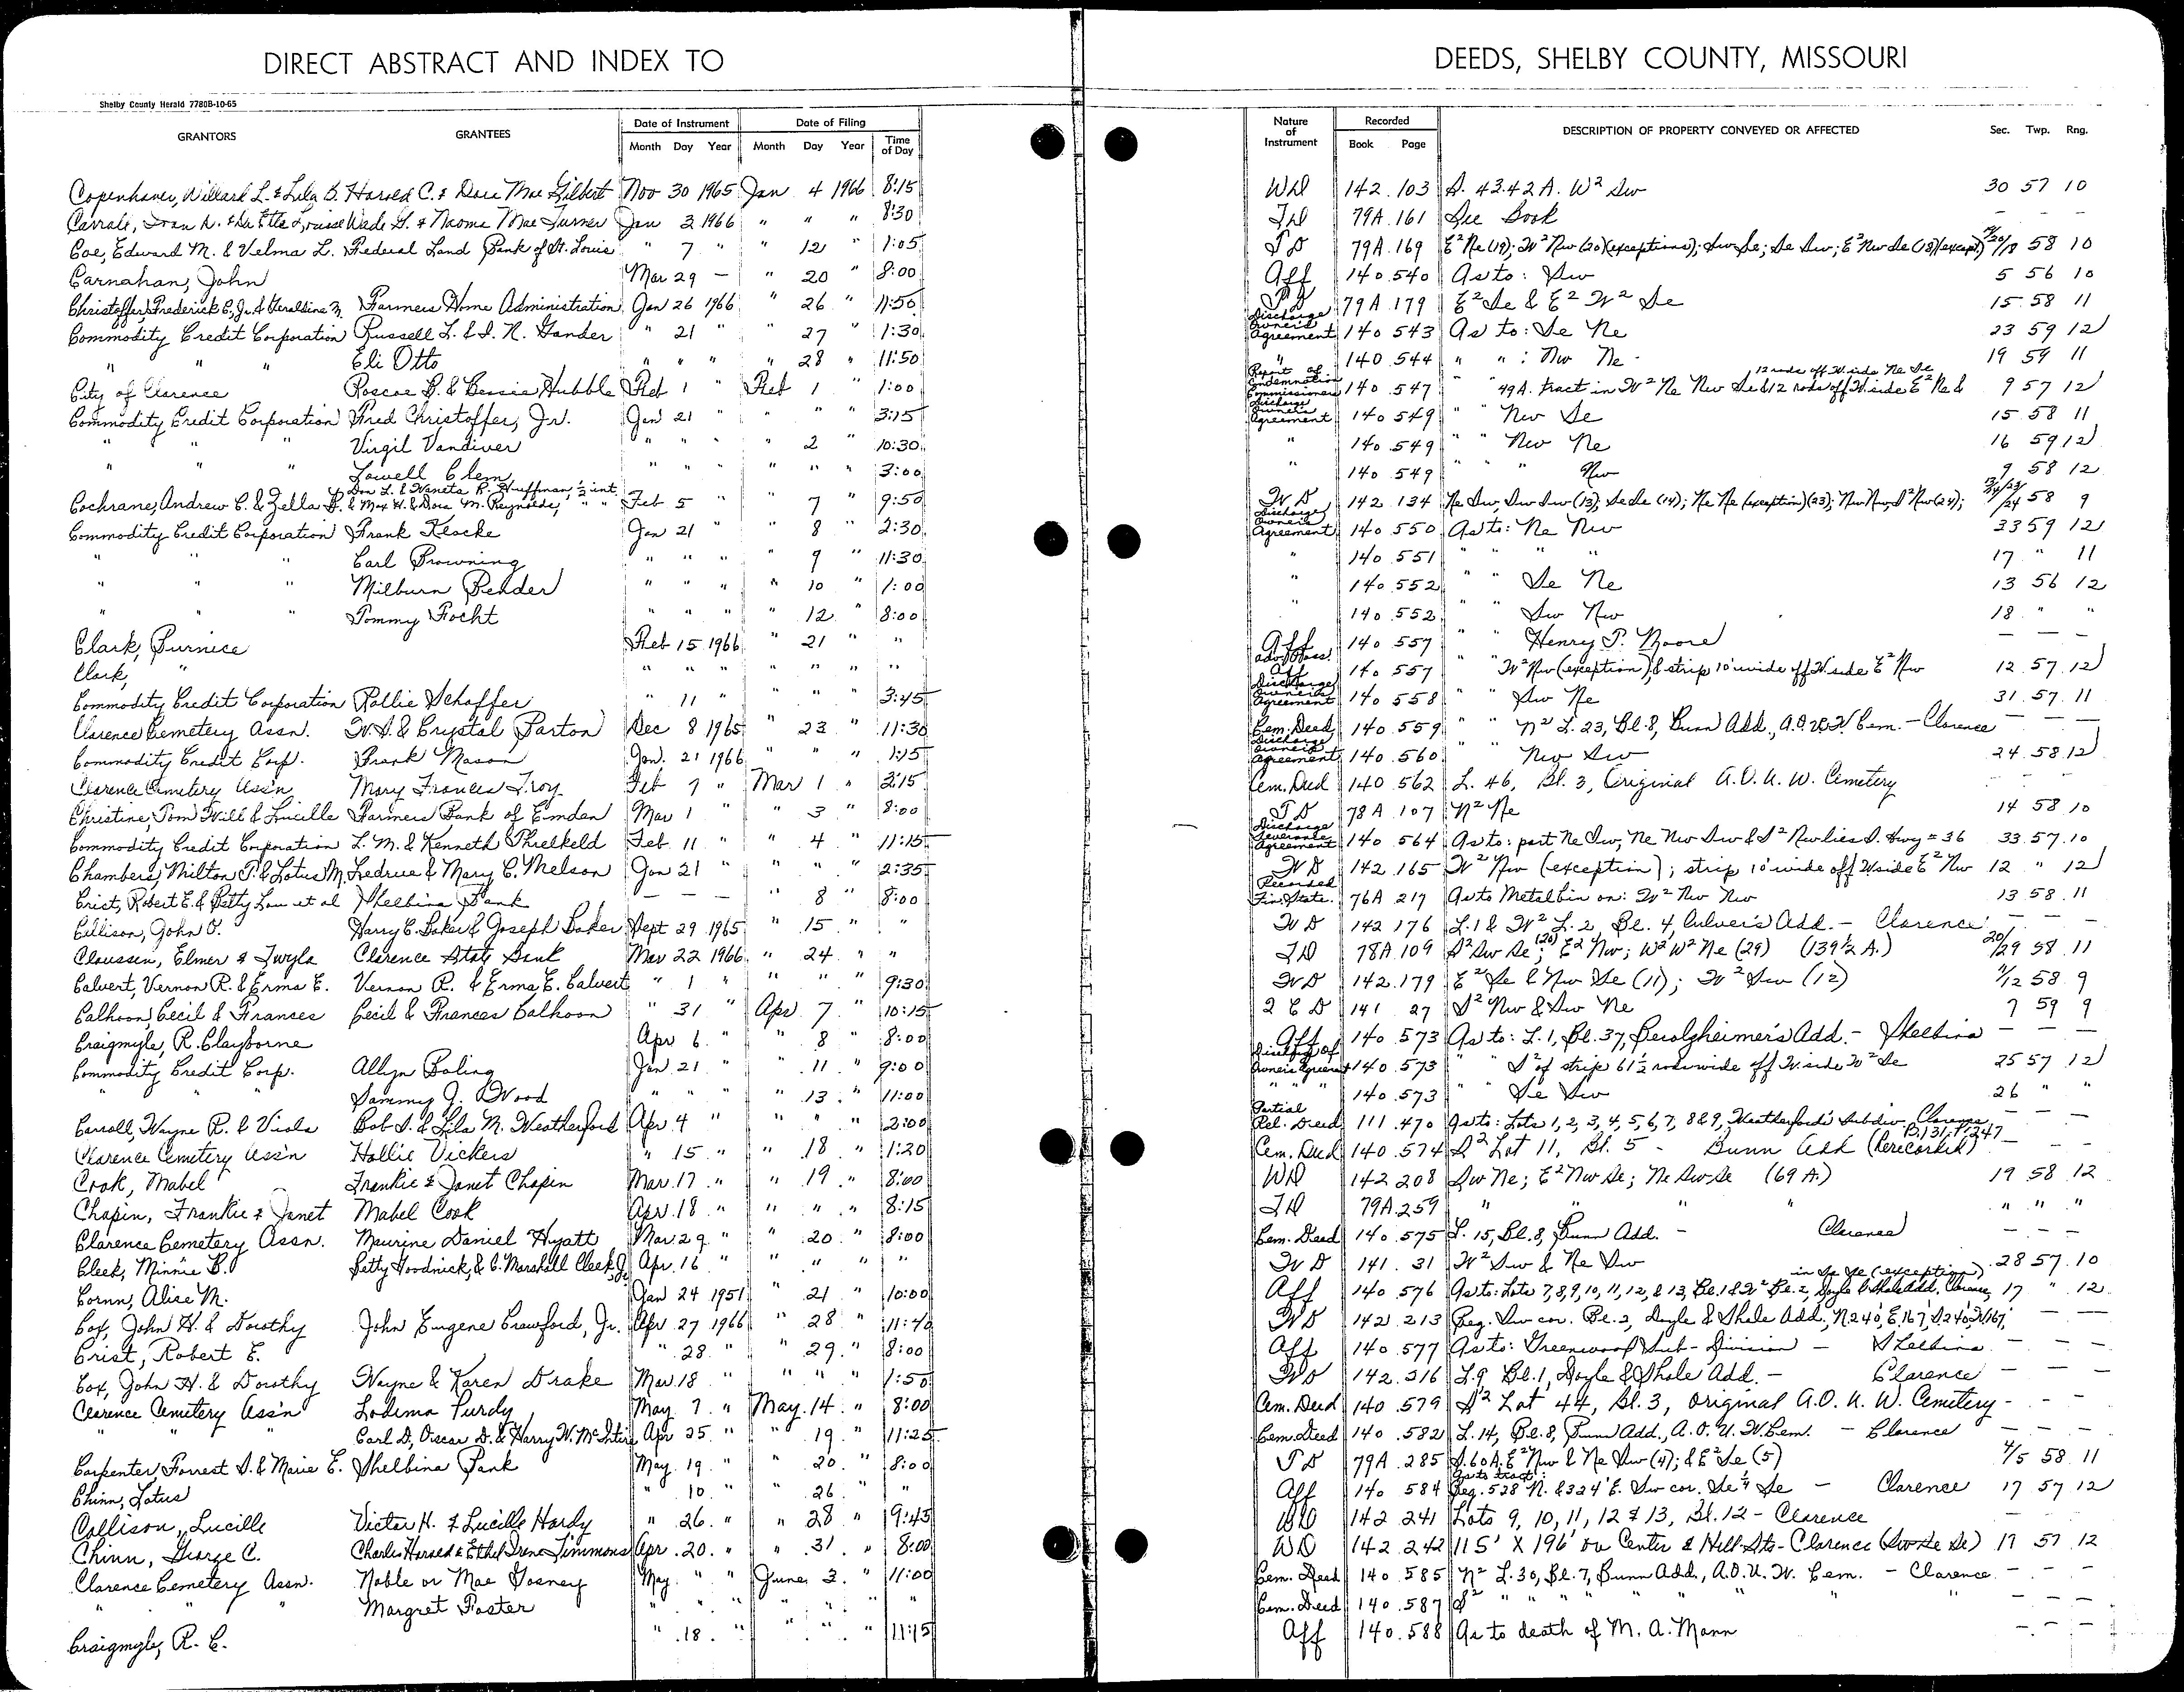 DIRECT ABSTRACT AND INDEX TO DEEDS, SHELBY COUNTY, MISSOURI
Shelby County Herald 7780B-10-65
GRANTORS GRANTEES Date of Instrument Month Day Year Date of Filing Month Day Year Time of Day Nature of Instrument Recorded Book Page DESCRIPTION OF PROPERTY CONVEYED OR AFFECTED Sec. Twp. Rng.
Copenhaver, Willard L. & Lula B. Harold C. & Dora Mae Gilbert Nov 30 1965 Jan 4 1966 8:15 WD 142 103 S. 43.42 A. W² Sw 30 57 10
Wade G. & Naoma Mae Turner Jan 3 1966 " " " 8:30 TD 79A 161 See Book - - -
Coe, Edward M. & Velma L. Federal Land Bank of St. Louis " 7 " " 12 " 1:05 TD 79A 169 E² Ne (19); W² Nw (20)(exceptions); Sw Se; Se Sw; E² Nw Se (18)(except) 19/20/18 58 10
Carnahan, John Mar 29 — " 20 " 8:00 Aff 140 540 As to: Sw 5 56 10
Christoffer, Frederick C., Jr. & Geraldine M. Farmers Home Administration Jan 26 1966 " 26 " 11:50 TD 79A 179 E² Se & E² W² Se 15 58 11
Commodity Credit Corporation Russell L. & I. N. Gander " 21 " 27 " 1:30 Discharge Owner's Agreement 140 543 As to: Se Ne 23 59 12
" " " Eli Otto " " " " 28 " 11:50 " 140 544 " " : Nw Ne 19 59 11
City of Clarence Roscoe B. & Bessie Hubble Feb 1 " Feb 1 " 1:00 Report of Condemnation Commissioners 140 547 " " 49 A. tract in W² Ne Nw Se & 12 rods off W. side E² Ne & 12 rods off W. side Ne Se 9 57 12
Commodity Credit Corporation Fred Christoffer, Jr. Jan 21 " " " " 3:15 Discharge Owner's Agreement 140 549 " " Nw Se 15 58 11
" " " Virgil Vandiver " " " " 2 " 10:30 " 140 549 " " Nw Ne 16 59 12
" " " Lowell Clem " " " " " " 3:00 " 140 549 " " Nw 9 58 12
Cochrane, Andrew C. & Zella F. Don L. & Waneta R. Huffman, ½ int. & Max H. & Dora M. Reynolds, " " Feb 5 " " 7 " 9:50 WD 142 134 Ne Sw, Sw Sw (13); Se Se (14); Ne Ne (exception)(23); Nw Nw, S² Nw (24); 13/14/23/24 58 9
Commodity Credit Corporation Frank Keocke Jan 21 " 8 " 2:30 Discharge Owner's Agreement 140 550 As to: Ne Nw 33 59 12
" " " Carl Browning " " " " 9 " 11:30 " 140 551 " " " " 17 " 11
" " " Milburn Bender " " " " 10 " 1:00 " 140 552 " " Se Ne 13 56 12
" " " Tommy Focht " " " " 12 " 8:00 " 140 552 " " Sw Nw 18 " "
Clark, Burnice Feb 15 1966 " 21 " " Aff 140 557 " " Henry T. Moore — — —
Clark, " " " " " " " " Adv. Poss. Aff 140 557 " " W² Nw (exception), & strip 10' wide off W side E² Nw 12 57 12
Commodity Credit Corporation Rollie Schaffer " 11 " " " " 3:45 Discharge Owner's Agreement 140 558 " " Sw Ne 31 57 11
Clarence Cemetery Assn. W.S. & Crystal Parton Dec 8 1965 " 23 " 11:30 Cem. Deed 140 559 " " N² L. 23, Bl. 8, Bunn Add., A.O.U.W. Cem. - Clarence — — —
Commodity Credit Corp. Frank Mason Jan. 21 1966 " " " 1:15 Discharge Owner's Agreement 140 560 " " Nw Sw 24 58 12
Clarence Cemetery Ass'n Mary Frances Troy Feb 7 " Mar 1 " 2:15 Cem. Deed 140 562 L. 46, Bl. 3, Original A.O.U.W. Cemetery - - -
Christine, Tom Will & Lucille Farmers Bank of Emden Mar 1 " " 3 " 8:00 TD 78A 107 N² Ne 14 58 10
Commodity Credit Corporation L. M. & Kenneth Threlkeld Feb. 11 " " 4 " 11:15 Discharge Severance Agreement 140 564 As to: part Ne Sw, Ne Nw Sw & S² Nw lies S. Hwy = 36 33 57 10
Chambers, Milton P. & Lotus M. Ledrue & Mary C. Melson Jan 21 " " " " 2:35 WD 142 165 W² Nw (exception); strip 10' wide off W side E² Nw 12 " 12
Crist, Robert E. & Betty Lou et al Shelbina Bank — — " 8 " 8:00 Recorded Fin. State. 76A 217 As to Metal bin on: W² Nw Nw 13 58 11
Ellison, John O. Harry C. Baker & Joseph Baker Sept 29 1965 " 15 " " WD 142 176 L. 1 & W² L. 2, Bl. 4, Culver's Add. - Clarence — — —
Claussen, Elmer & Twyla Clarence State Bank Mar 22 1966 " 24 " " TD 78A 109 S² Sw Se (20); E² Nw; W² W² Ne (29) (139½ A.) 20/29 58 11
Calvert, Vernon R. & Erma E. Vernon R. & Erma E. Calvert " 1 " " " " 9:30 WD 142 179 E² Se & Nw Se (11); W² Sw (12) 11/12 58 9
Calhoon, Cecil & Frances Cecil & Frances Calhoon " 31 " Apr 7 " 10:15 QCD 141 27 S² Nw & Sw Ne 7 59 9
Craigmyle, R. Clayborne Apr 6 " " 8 " 8:00 Aff 140 573 As to: L. 1, Bl. 37, Berolzheimer's Add. - Shelbina — — —
Commodity Credit Corp. Allyn Boling Jan. 21 " " 11 " 9:00 Discharge of Owners Agreement 140 573 " " S² of strip 61½ rods wide off W. side W² Se 25 57 12
" " Sammy J. Wood " " " " 13 " 11:00 " " " 140 573 " " Se Sw 26 " "
Carroll, Wayne R. & Viola Bob S. & Lila M. Weatherford Apr 4 " " " " 2:00 Partial Rel. Deed 111 470 As to: Lots 1, 2, 3, 4, 5, 6, 7, 8 & 9, Weatherford's Subdiv. Clarence — — —
Clarence Cemetery Ass'n Hollie Vickers " 15 " " 18 " 1:20 Cem. Deed 140 574 S² Lot 11, Bl. 5 - Bunn Add (Rerecorded) B.131, P.247 —
Cook, Mabel Frankie & Janet Chapin Mar. 17 " " 19 " 8:00 WD 142 208 Sw Ne; E² Nw Se; Ne Sw Se (69 A.) 19 58 12
Chapin, Frankie & Janet Mabel Cook Apr. 18 " " " " 8:15 TD 79A 259 " " " " " "
Clarence Cemetery Assn. Maurine Daniel Hyatt Mar. 29 " " 20 " 8:00 Cem. Deed 140 575 L. 15, Bl. 8, Bunn Add. - Clarence - - -
Cleek, Minnie B. Patty Goodnick, & C. Marshall Cleek, Jr. Apr. 16 " " " " " WD 141 31 W² Sw & Ne Sw 28 57 10
Cornn, Alise M. Jan 24 1951 " 21 " 10:00 Aff 140 576 As to: Lots 7, 8, 9, 10, 11, 12, & 13, Bl. 1 & W² Bl. 2, Doyle & Shale Add. Clarence, in Se Se (exception) 17 " 12
Cox, John H. & Dorothy John Eugene Crawford, Jr. Apr 27 1966 " 28 " 11:40 WD 142 213 Beg. Sw cor. Bl. 2, Doyle & Shale Add., N. 240', E. 167', S. 240', W. 167', — — —
Crist, Robert E. " 28 " " 29 " 8:00 Aff 140 577 As to: Greenwood Sub-Division - Shelbina — — —
Cox, John H. & Dorothy Wayne & Karen Drake Mar. 18 " " " " 1:50 WD 142 216 L. 9 Bl. 1, Doyle & Shale Add. - Clarence — — —
Clarence Cemetery Ass'n Lodema Purdy May 7 " May 14 " 8:00 Cem. Deed 140 579 S² Lot 44, Bl. 3, Original A.O.U.W. Cemetery - - -
" " " Carl D., Oscar D. & Harry W. McIntire Apr 25 " " 19 " 11:25 Cem. Deed 140 582 L. 14, Bl. 8, Bunn Add., A.O.U.W. Cem. - Clarence — — —
Carpenter, Forrest S. & Marie E. Shelbina Bank May 19 " " 20 " 8:00 TD 79A 285 S. 60 A. E² Nw & Ne Sw (4); & E² Se (5) 4/5 58 11
Chinn, Lotus " 10 " " 26 " " Aff 140 584 As to tract: Beg. 528' N. & 324' E. Sw cor. Se¼ Se - Clarence 17 57 12
Collison, Lucille Victor H. & Lucille Hardy " 26 " " 28 " 9:45 WD 142 241 Lots 9, 10, 11, 12 & 13, Bl. 12 - Clarence
Chinn, George C. Charles Harold & Ethel Irene Timmons Apr. 20 " " 31 " 8:00 WD 142 242 115' X 196' on Center & Hill Sts - Clarence (Sw Se Se) 17 57 12
Clarence Cemetery Assn. Noble or Mae Gosney May " " June 3 " 11:00 Cem. Deed 140 585 N² L. 30, Bl. 7, Bunn Add., A.O.U.W. Cem. - Clarence - - -
" " " Margret Foster " " " " " " " Cem. Deed 140 587 S² " " " " " — — —
Craigmyle, R. C. " 18 " " " " 11:15 Aff 140 588 As to death of M. A. Mann - - -